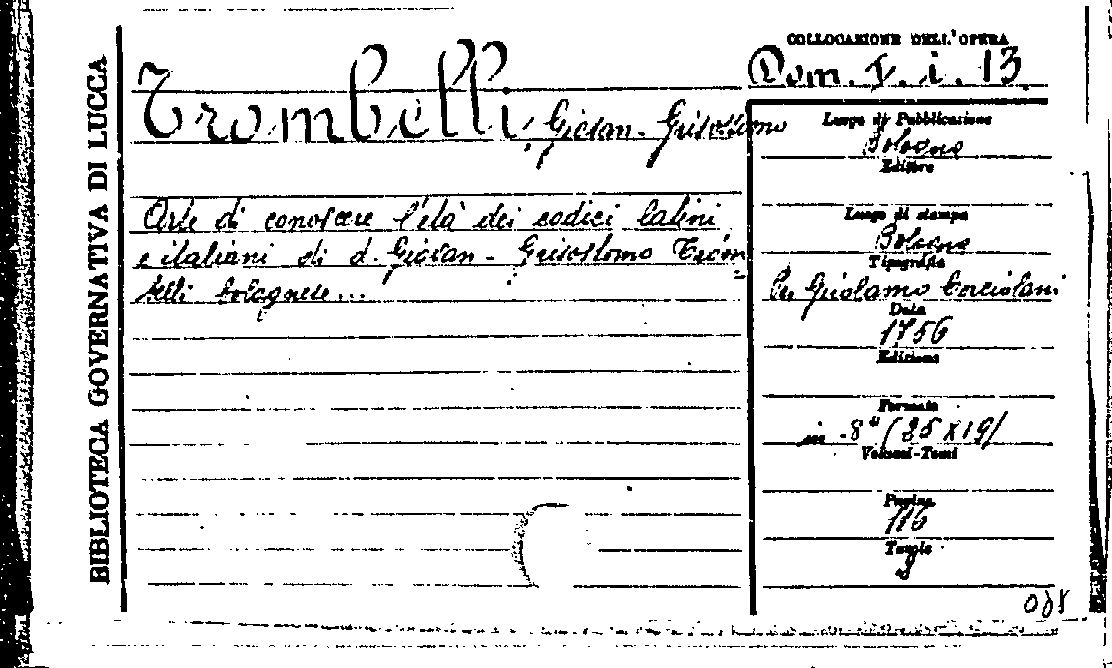 BIBLIOTECA GOVERNATIVA DI LUCCA
COLLOCAZIONE DELL'OPERA
Dom. I. i. 13
Trombelli, Giovan-Grisostomo
Arte di conoscere l'età dei codici latini
e italiani di d. Giovan-Grisostomo Trom
belli bolognese...
Luogo di Pubblicazione
Bologna
Editore
Luogo di stampa
Bologna
Tipografia
Per Girolamo Corciolani
Data
1756
Edizione
Formato
in-8° (25 x 19)
Volumi-Tomi
Pagine
116
Tavole